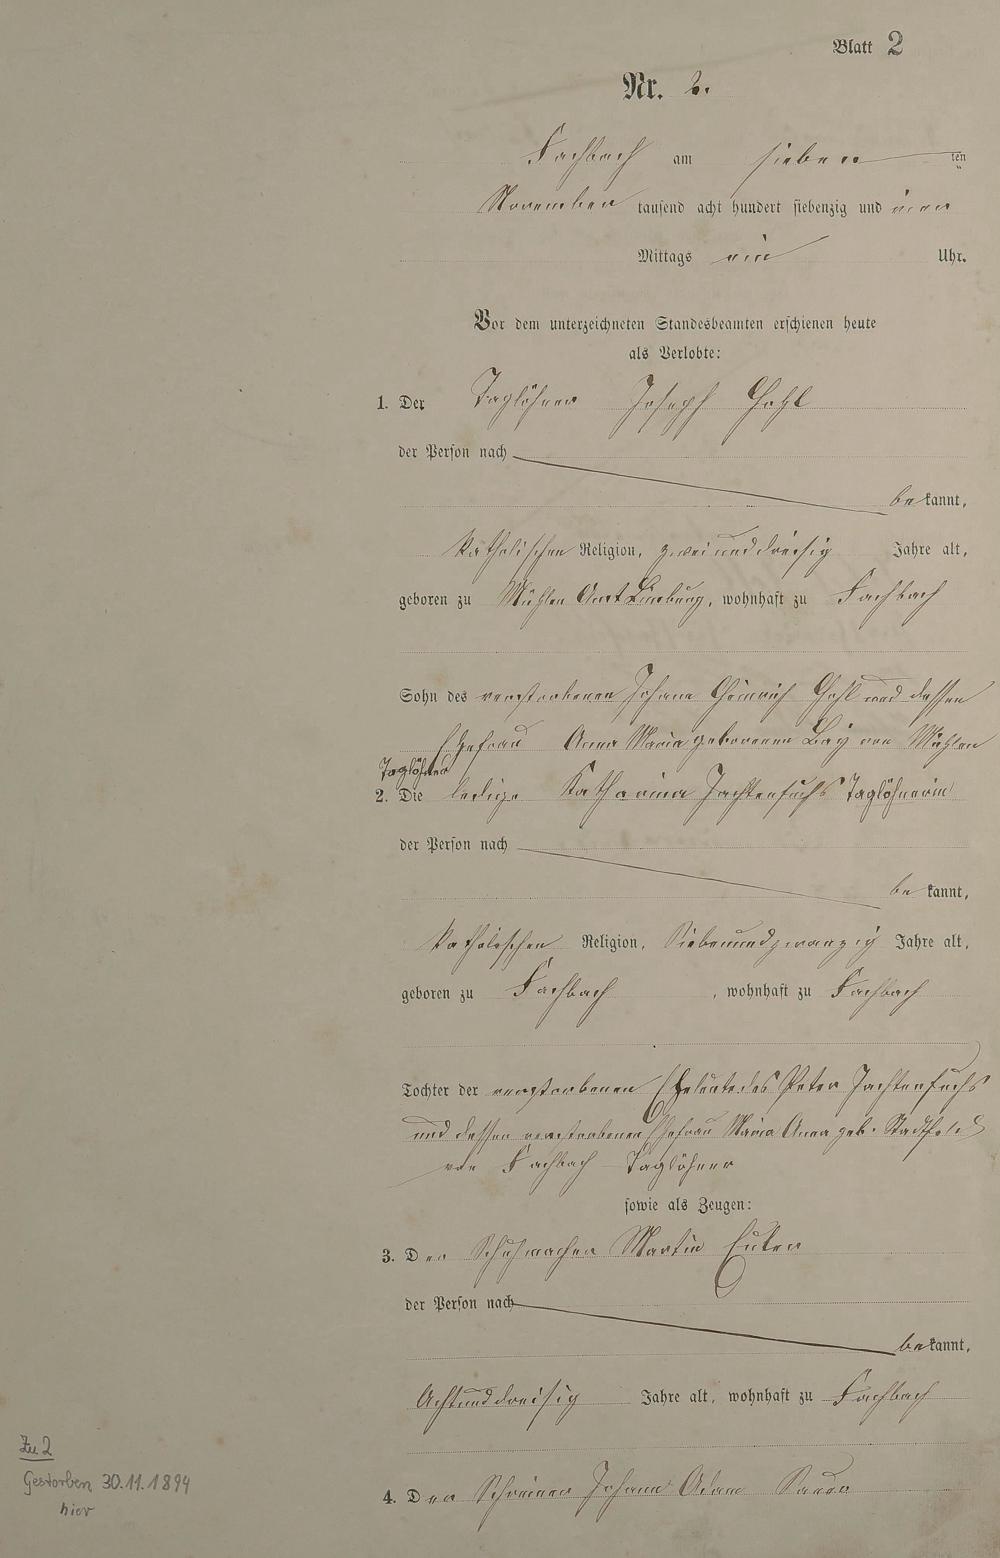 Blatt 2
Nr. 2.
Fachbach am sieben ten
November tausend acht hundert siebenzig und vier
Mittags ein Uhr.
Vor dem unterzeichneten Standesbeamten erschienen heute
als Verlobte:
1. Der Taglöhner Joseph Gohl
der Person nach
bekannt,
katholischen Religion, zweiunddreisig Jahre alt,
geboren zu Mühlen Amt Limburg, wohnhaft zu Fachbach
Sohn des verstorbenen Johann Heinrich Gohl und dessen
Ehefrau Anna Maria geborenen von Mühlen
Taglöhner
2. Die ledige Katharina Jachtenfuchs Taglöhnerin
der Person nach
bekannt,
katholischen Religion, Siebenundzwanzig Jahre alt,
geboren zu Fachbach, wohnhaft zu Fachbach
Tochter der verstorbenen Eheleute des Peter Jachtenfuchs
und dessen verstorbenen Ehefrau Maria Anna geb.
von Fachbach Taglöhner
sowie als Zeugen:
3. Der Schuhmacher Martin
der Person nach
bekannt,
Achtunddreisig Jahre alt, wohnhaft zu Fachbach
4. Der Schreiner Johann Adam
Zu 2
Gestorben 30.11.1894
hier